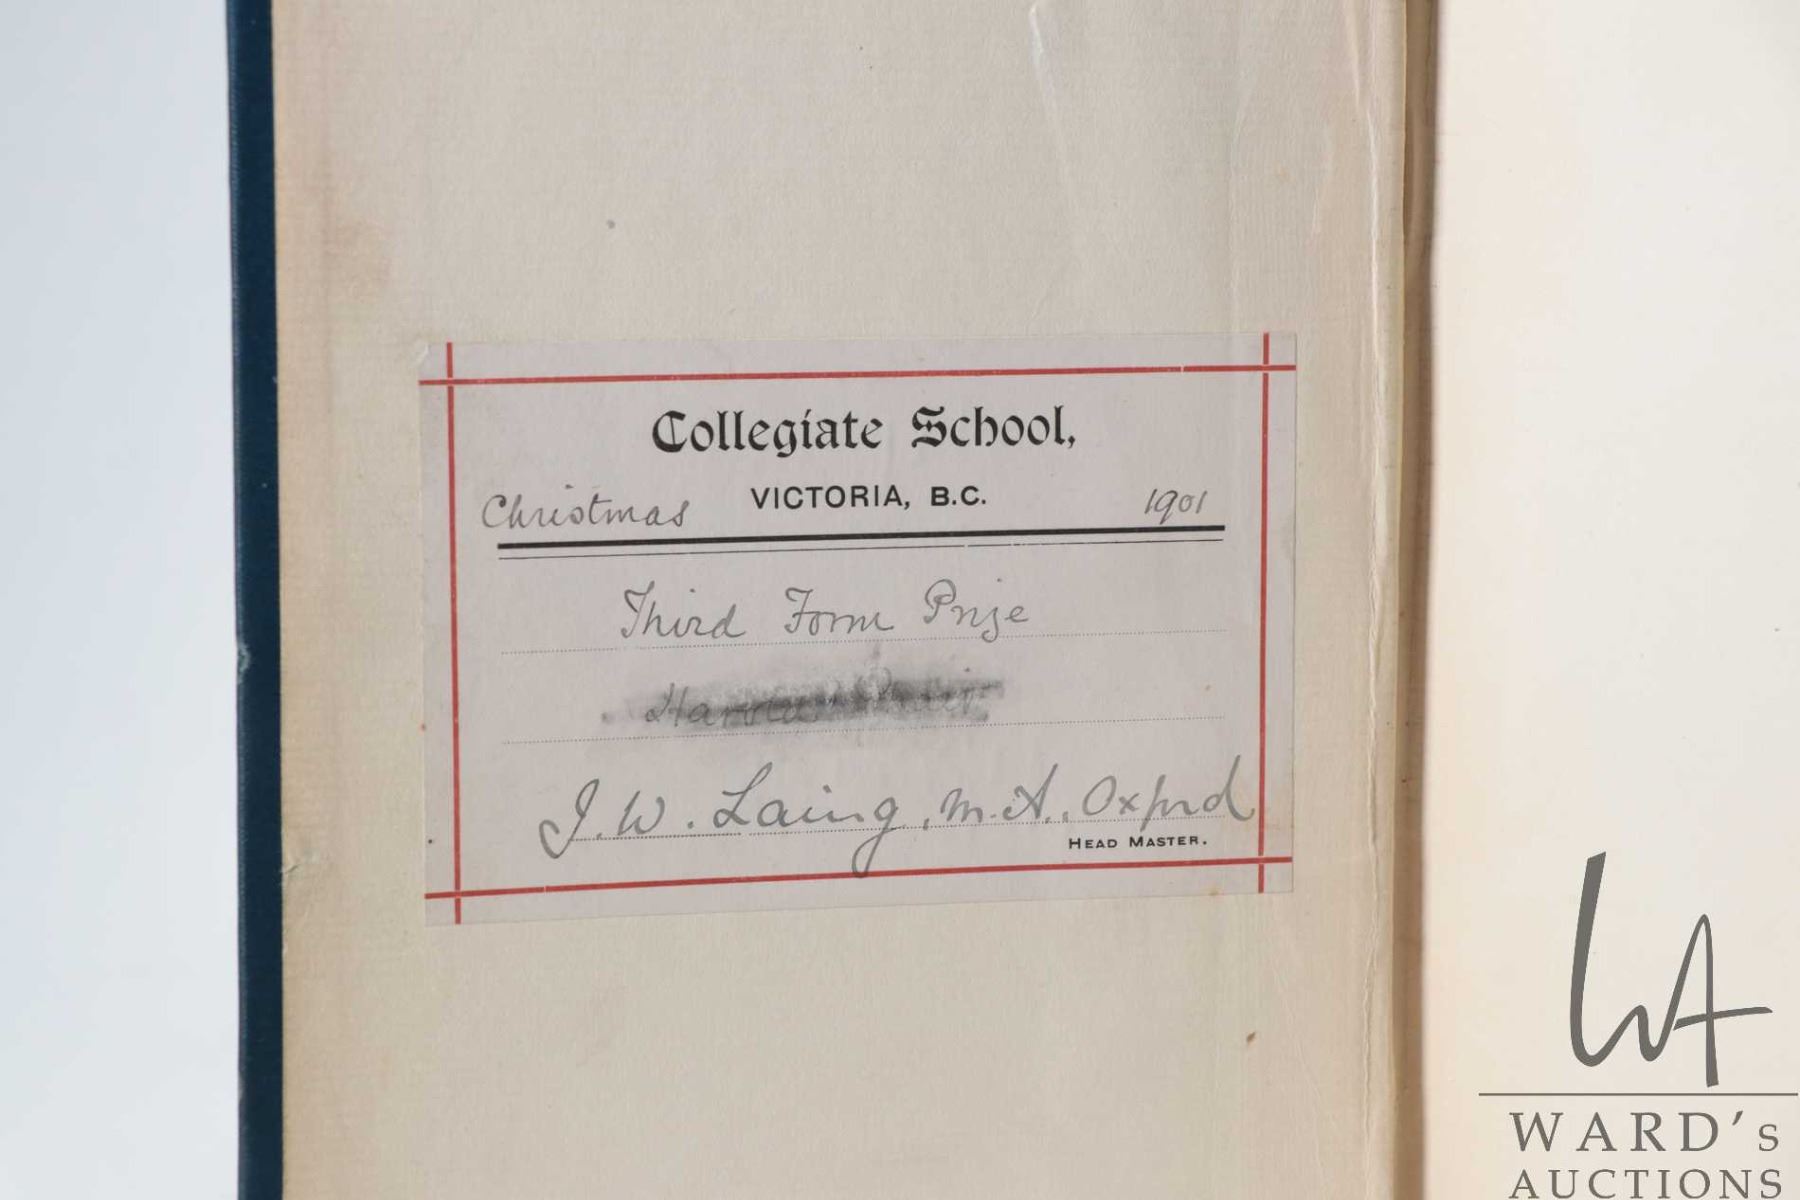 Collegiate School,
Christmas VICTORIA, B.C. 1901
Third Form Prize
Harold
J. W. Laing, M.A., Oxford
HEAD MASTER.
WA
WARD's
AUCTIONS